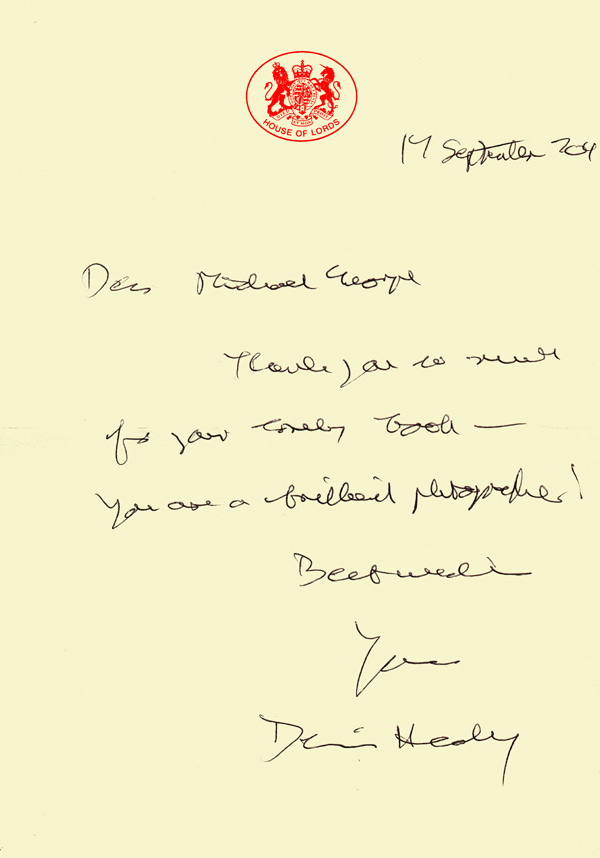 HOUSE OF LORDS
September
Dear Michael George
Thank you so much
for your lovely book —
You are a brilliant photographer!
Best wishes
Yours
Denis Healey